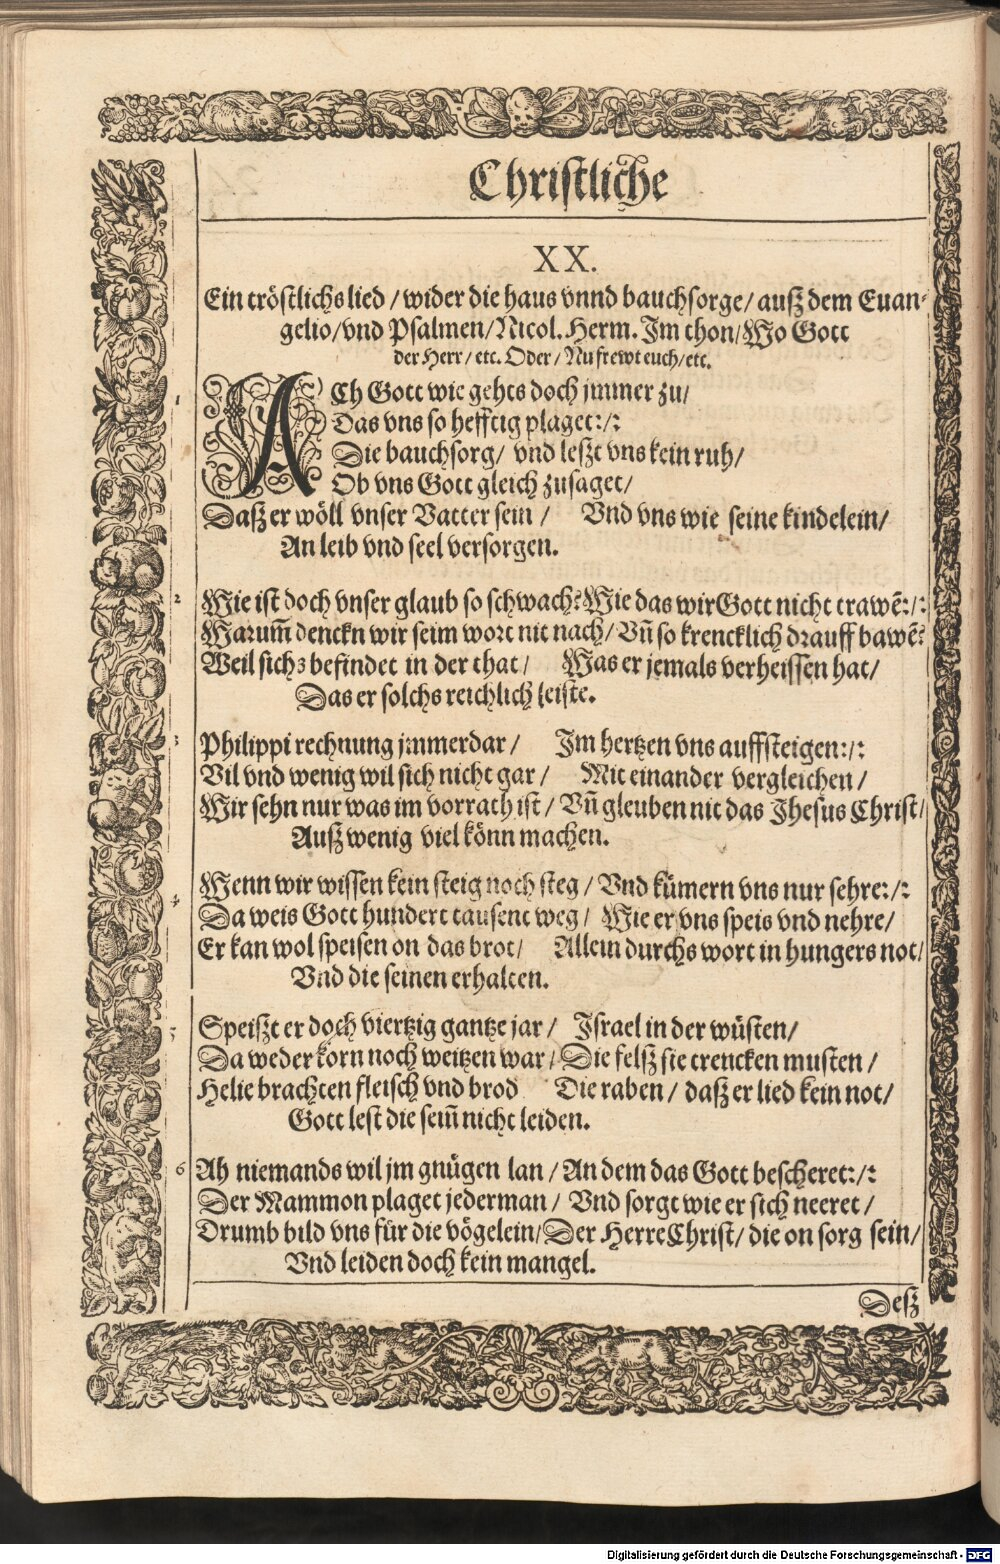 Christliche
XX.
Ein tröstlichs lied / wider die haus vnnd bauchsorge / auß dem Euan-
gelio / vnd Psalmen / Nicol. Herm. Im thon / Wo Gott
der Herr / etc. Oder / Nu frewt euch / etc.
1 ACh Gott wie gehts doch jmmer zu /
Das vns so hefftig plaget :/:
Die bauchsorg / vnd leszt vns kein ruh /
Ob vns Gott gleich zusaget /
Daß er wöll vnser Vatter sein / Vnd vns wie seine kindelein /
An leib vnd seel versorgen.
2 Wie ist doch vnser glaub so schwach? Wie das wir Gott nicht trawẽ :/:
Warum̃ denckn wir seim wort nit nach / Vñ so krencklich drauff bawẽ?
Weil sichs befindet in der that / Was er jemals verheissen hat /
Das er solchs reichlich leiste.
3 Philippi rechnung jmmerdar / Im hertzen vns auffsteigen :/:
Vil vnd wenig wil sich nicht gar / Mit einander vergleichen /
Wir sehn nur was im vorrath ist / Vñ gleuben nit das Jhesus Christ /
Auß wenig viel könn machen.
4 Wenn wir wissen kein steig noch steg / Vnd kümern vns nur sehre :/:
Da weis Gott hundert tausent weg / Wie er vns speis vnd nehre /
Er kan wol speisen on das brot / Allein durchs wort in hungers not /
Vnd die seinen erhalten.
5 Speiszt er doch viertzig gantze jar / Israel in der wüsten /
Da weder korn noch weitzen war / Die felß sie trencken musten /
Helie brachten fleisch vnd brod Die raben / daß er lied kein not /
Gott lest die seiñ nicht leiden.
6 Ah niemands wil jm gnügen lan / An dem das Gott bescheret :/:
Der Mammon plaget jederman / Vnd sorgt wie er sich neeret /
Drumb bild vns für die vögelein / Der Herre Christ / die on sorg sein /
Vnd leiden doch kein mangel.
Deß
Digitalisierung gefördert durch die Deutsche Forschungsgemeinschaft - DFG